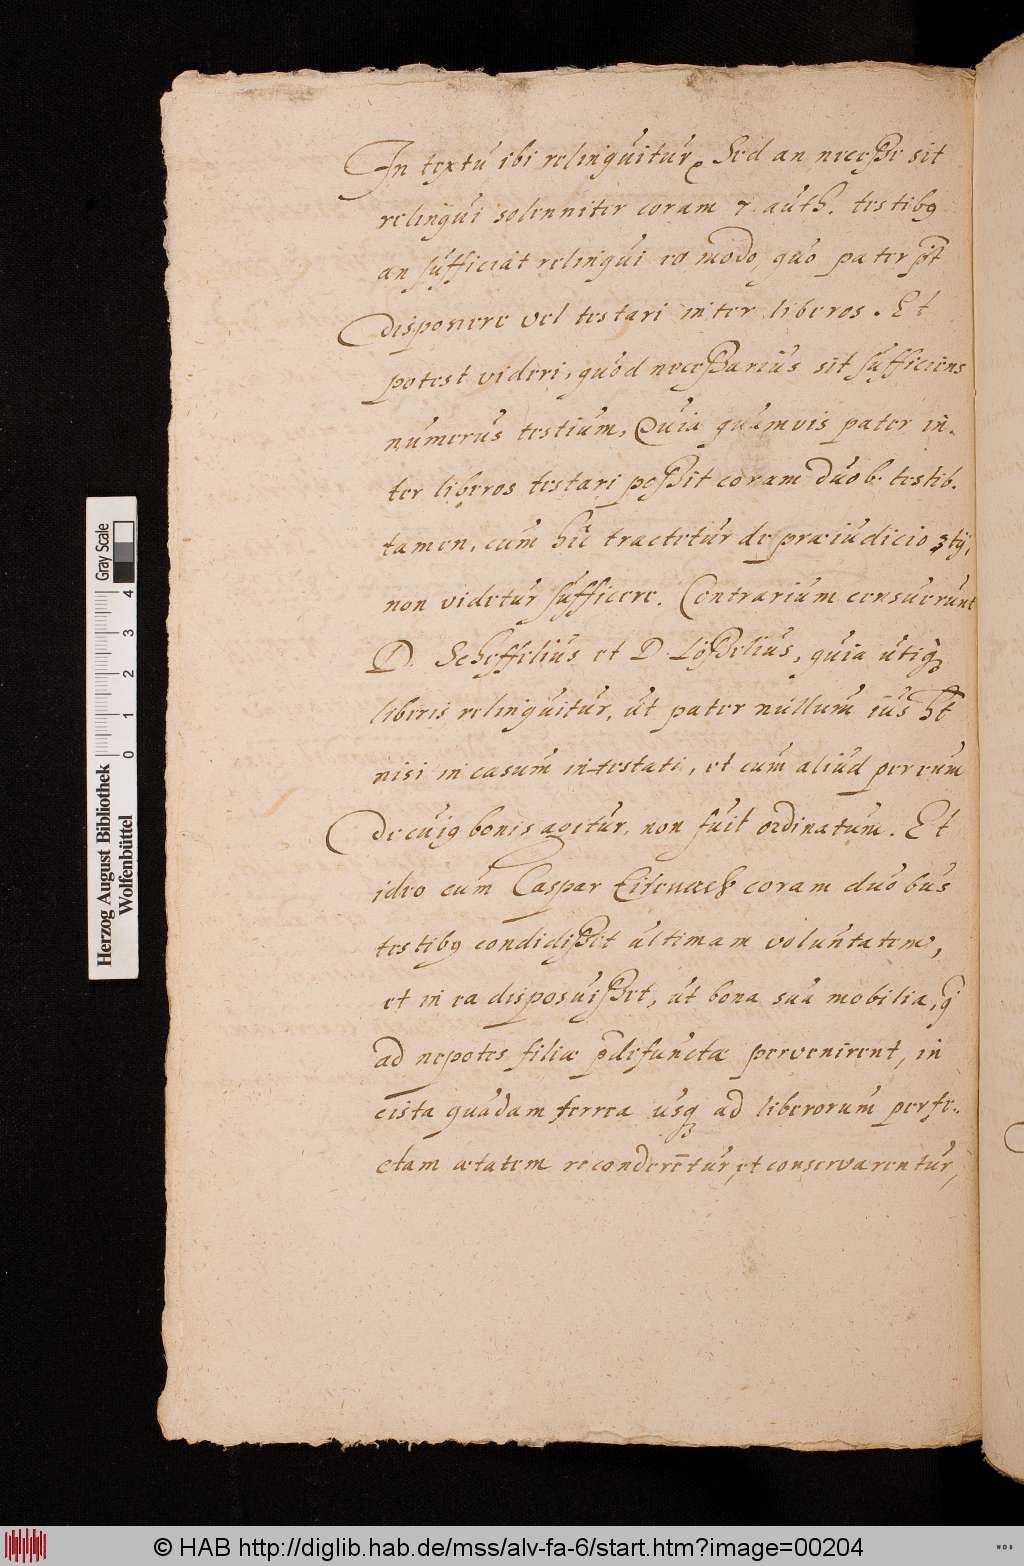 In textu ibi relinquitur. Sed an necesse sit
relinqui solenniter coram 7. auth. testibꝯ
an sufficiat relinqui eo modo, quo pater pt̃
disponere vel testari inter liberos. Et
potest videri, quod necessarius sit sufficiens
numerus testium, Quia quamvis pater in-
ter liberos testari possit coram duob. testib.
tamen, cum hic tractetur de præiudicio 3tij,
non videtur sufficere. Contrarium censuerunt
D. Scheffilius et D. Lösselius, quia utiqꝫ
liberis relinquitur, ut pater nullum ius ht̃
nisi in casum intestati, et cum aliud per eum
de cuiꝯ bonis agetur, non fuit ordinatum. Et
ideo cum Caspar Eisenack coram duobus
testibꝯ condidisset ultimam voluntatem,
et in ea disposuisset, ut bona sua mobilia, q̃
ad nepotes filiæ p̃defunctæ pervenirent, in
cista quadam ferrea usqꝫ ad liberorum perfe-
ctam ætatem reconderētur, et conservarentur,
Herzog August Bibliothek
Wolfenbüttel
0 1 2 3 4
Gray Scale
© HAB http://diglib.hab.de/mss/alv-fa-6/start.htm?image=00204
WDB